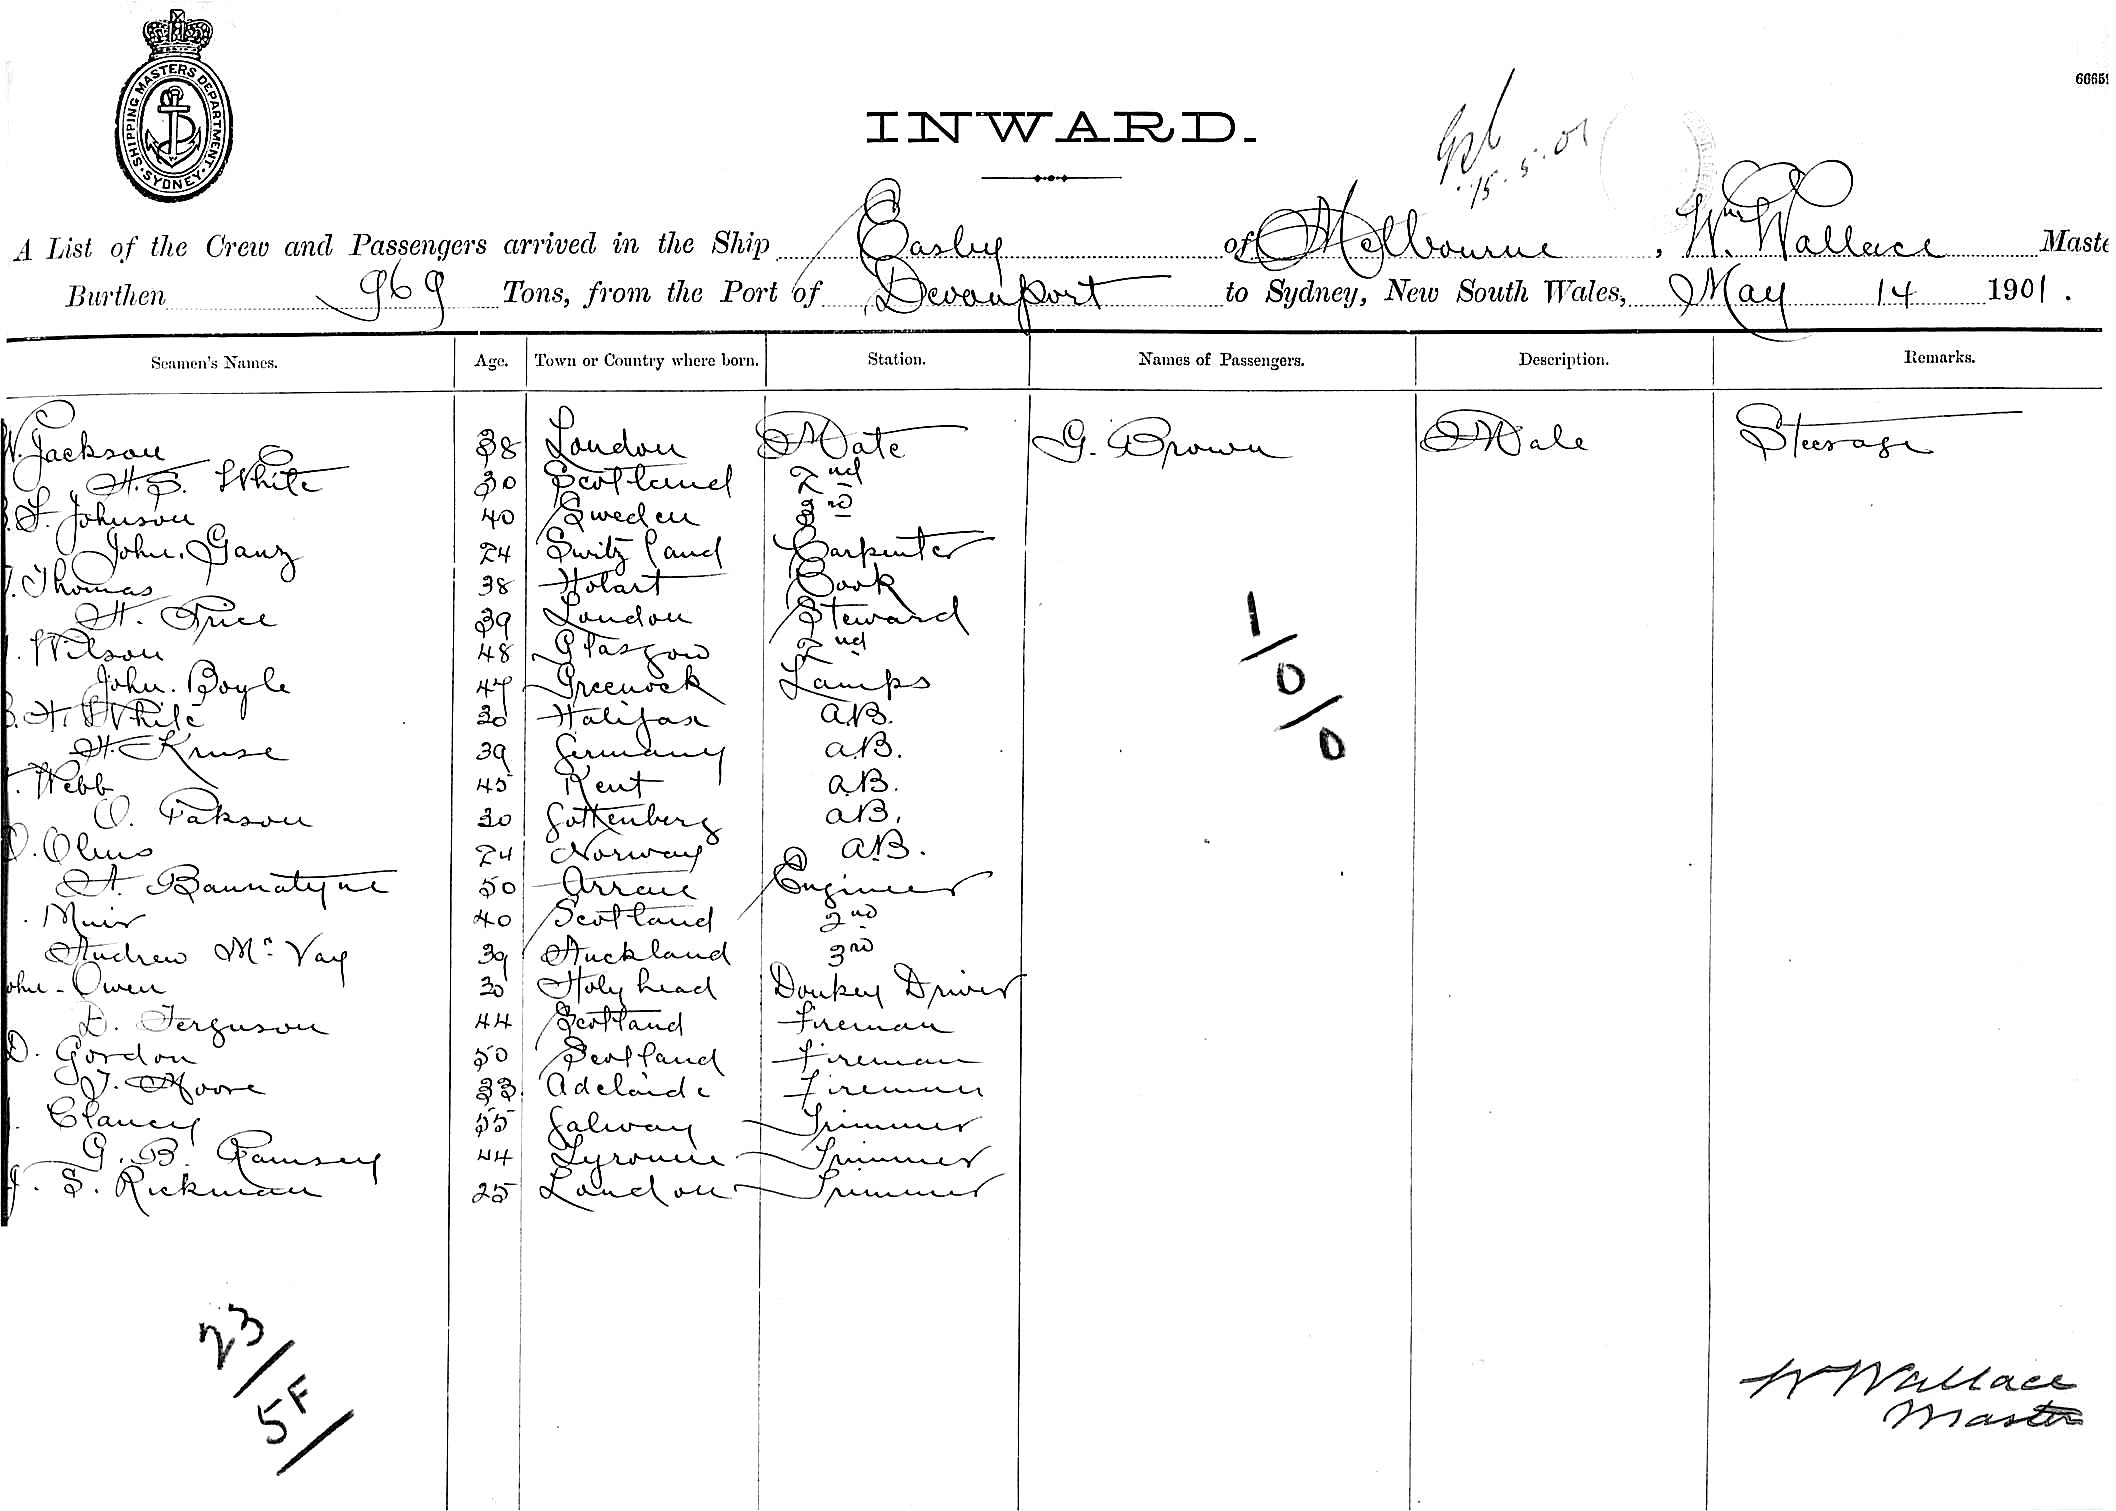 SHIPPING MASTERS DEPARTMENT
SYDNEY
6665
INWARD.
15.5.01
A List of the Crew and Passengers arrived in the Ship Easby of Melbourne, Wm W. Wallace Maste
Burthen 969 Tons, from the Port of Devonport to Sydney, New South Wales, May 14 1901.
Seamen's Names. Age. Town or Country where born. Station. Names of Passengers. Description. Remarks.
W. Jackson 38 London Mate G. Brown Male Steerage
H. S. White 30 Scotland 2nd
F. Johnson 40 Sweden 3rd
John. Ganz 24 Switz land Carpenter
Thomas 38 Hobart Cook
H. Price 39 London Steward
Wilson 48 Glasgow 2nd
John. Boyle 47 Greenock Lamps
H. White 30 Halifax A.B.
H. Kruse 39 Germany A.B.
Webb 45 Kent A.B.
O. 30 Gottenberg A.B.
O. 24 Norway A.B.
A. Bannatyne 50 Arran Engineer
Muir 40 Scotland 2nd
Andrew Mc Vay 39 Auckland 3rd
ohn - Owen 30 Holy head Donkey Driver
D. Ferguson 44 Scotland Fireman
D. Gordon 50 Scotland Fireman
J. Moore 33 Adelaide Fireman
Clancy 55 Galway Trimmer
G. B. Ramsey 44 Tyrone Trimmer
J. S. Rickman 25 London Trimmer
1/0/0
23/5F/
W Wallace
Master